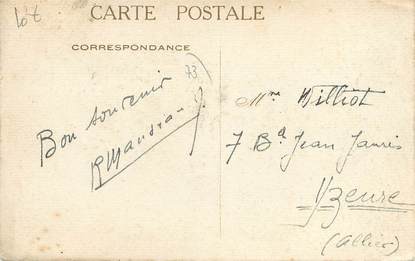 lot
CARTE POSTALE
CORRESPONDANCE
73
Bon souvenir
Mme Williot
7 Bd Jean Jaurès
Yzeure
(Allier)